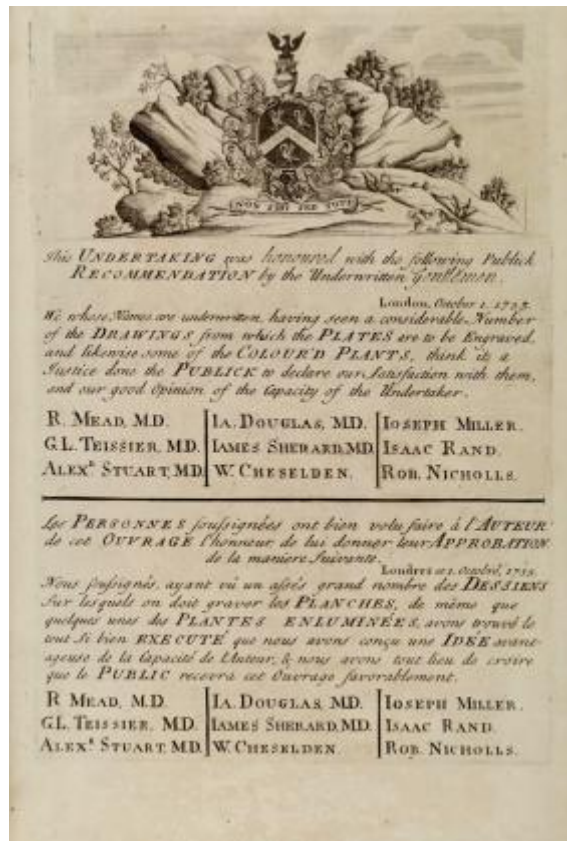 NON SIBI SED TOTI
This UNDERTAKING was honoured with the following Publick
RECOMMENDATION by the Underwritten Gentlemen.
London, October 1. 1735.
We whose Names are underwritten, having seen a considerable Number
of the DRAWINGS from which the PLATES are to be Engraved,
and likewise some of the COLOUR'D PLANTS, think it a
Justice done the PUBLICK to declare our Satisfaction with them,
and our good Opinion of the Capacity of the Undertaker.
R. MEAD, M.D. IA. DOUGLAS, MD. IOSEPH MILLER.
G.L. TEISSIER, M.D. IAMES SHERARD, MD. ISAAC RAND.
ALEX.R STUART, M.D. W. CHESELDEN. ROB. NICHOLLS.
Les PERSONNES soussignées ont bien volu faire à l'AUTEUR
de cet OUVRAGE l'honneur de lui donner leur APPROBATION
de la maniere suivante.
Londres ce 1. Octobre, 1735.
Nous soussignés, ayant vû un assés grand nombre des DESSIENS
sur lesquels on doit graver les PLANCHES, de même que
quelques unes des PLANTES ENLUMINÉES, avons trouvé le
tout si bien EXECUTÉ que nous avons conçu une IDÉE avant-
ageuse de la Capacité de l'Auteur, & nous avons tout lieu de croire
que le PUBLIC recevra cet Ouvrage favorablement.
R MEAD, M.D. IA. DOUGLAS, MD. IOSEPH MILLER.
G.L. TEISSIER, M.D. IAMES SHERARD, MD. ISAAC RAND.
ALEX.R STUART, M.D. W. CHESELDEN. ROB. NICHOLLS.